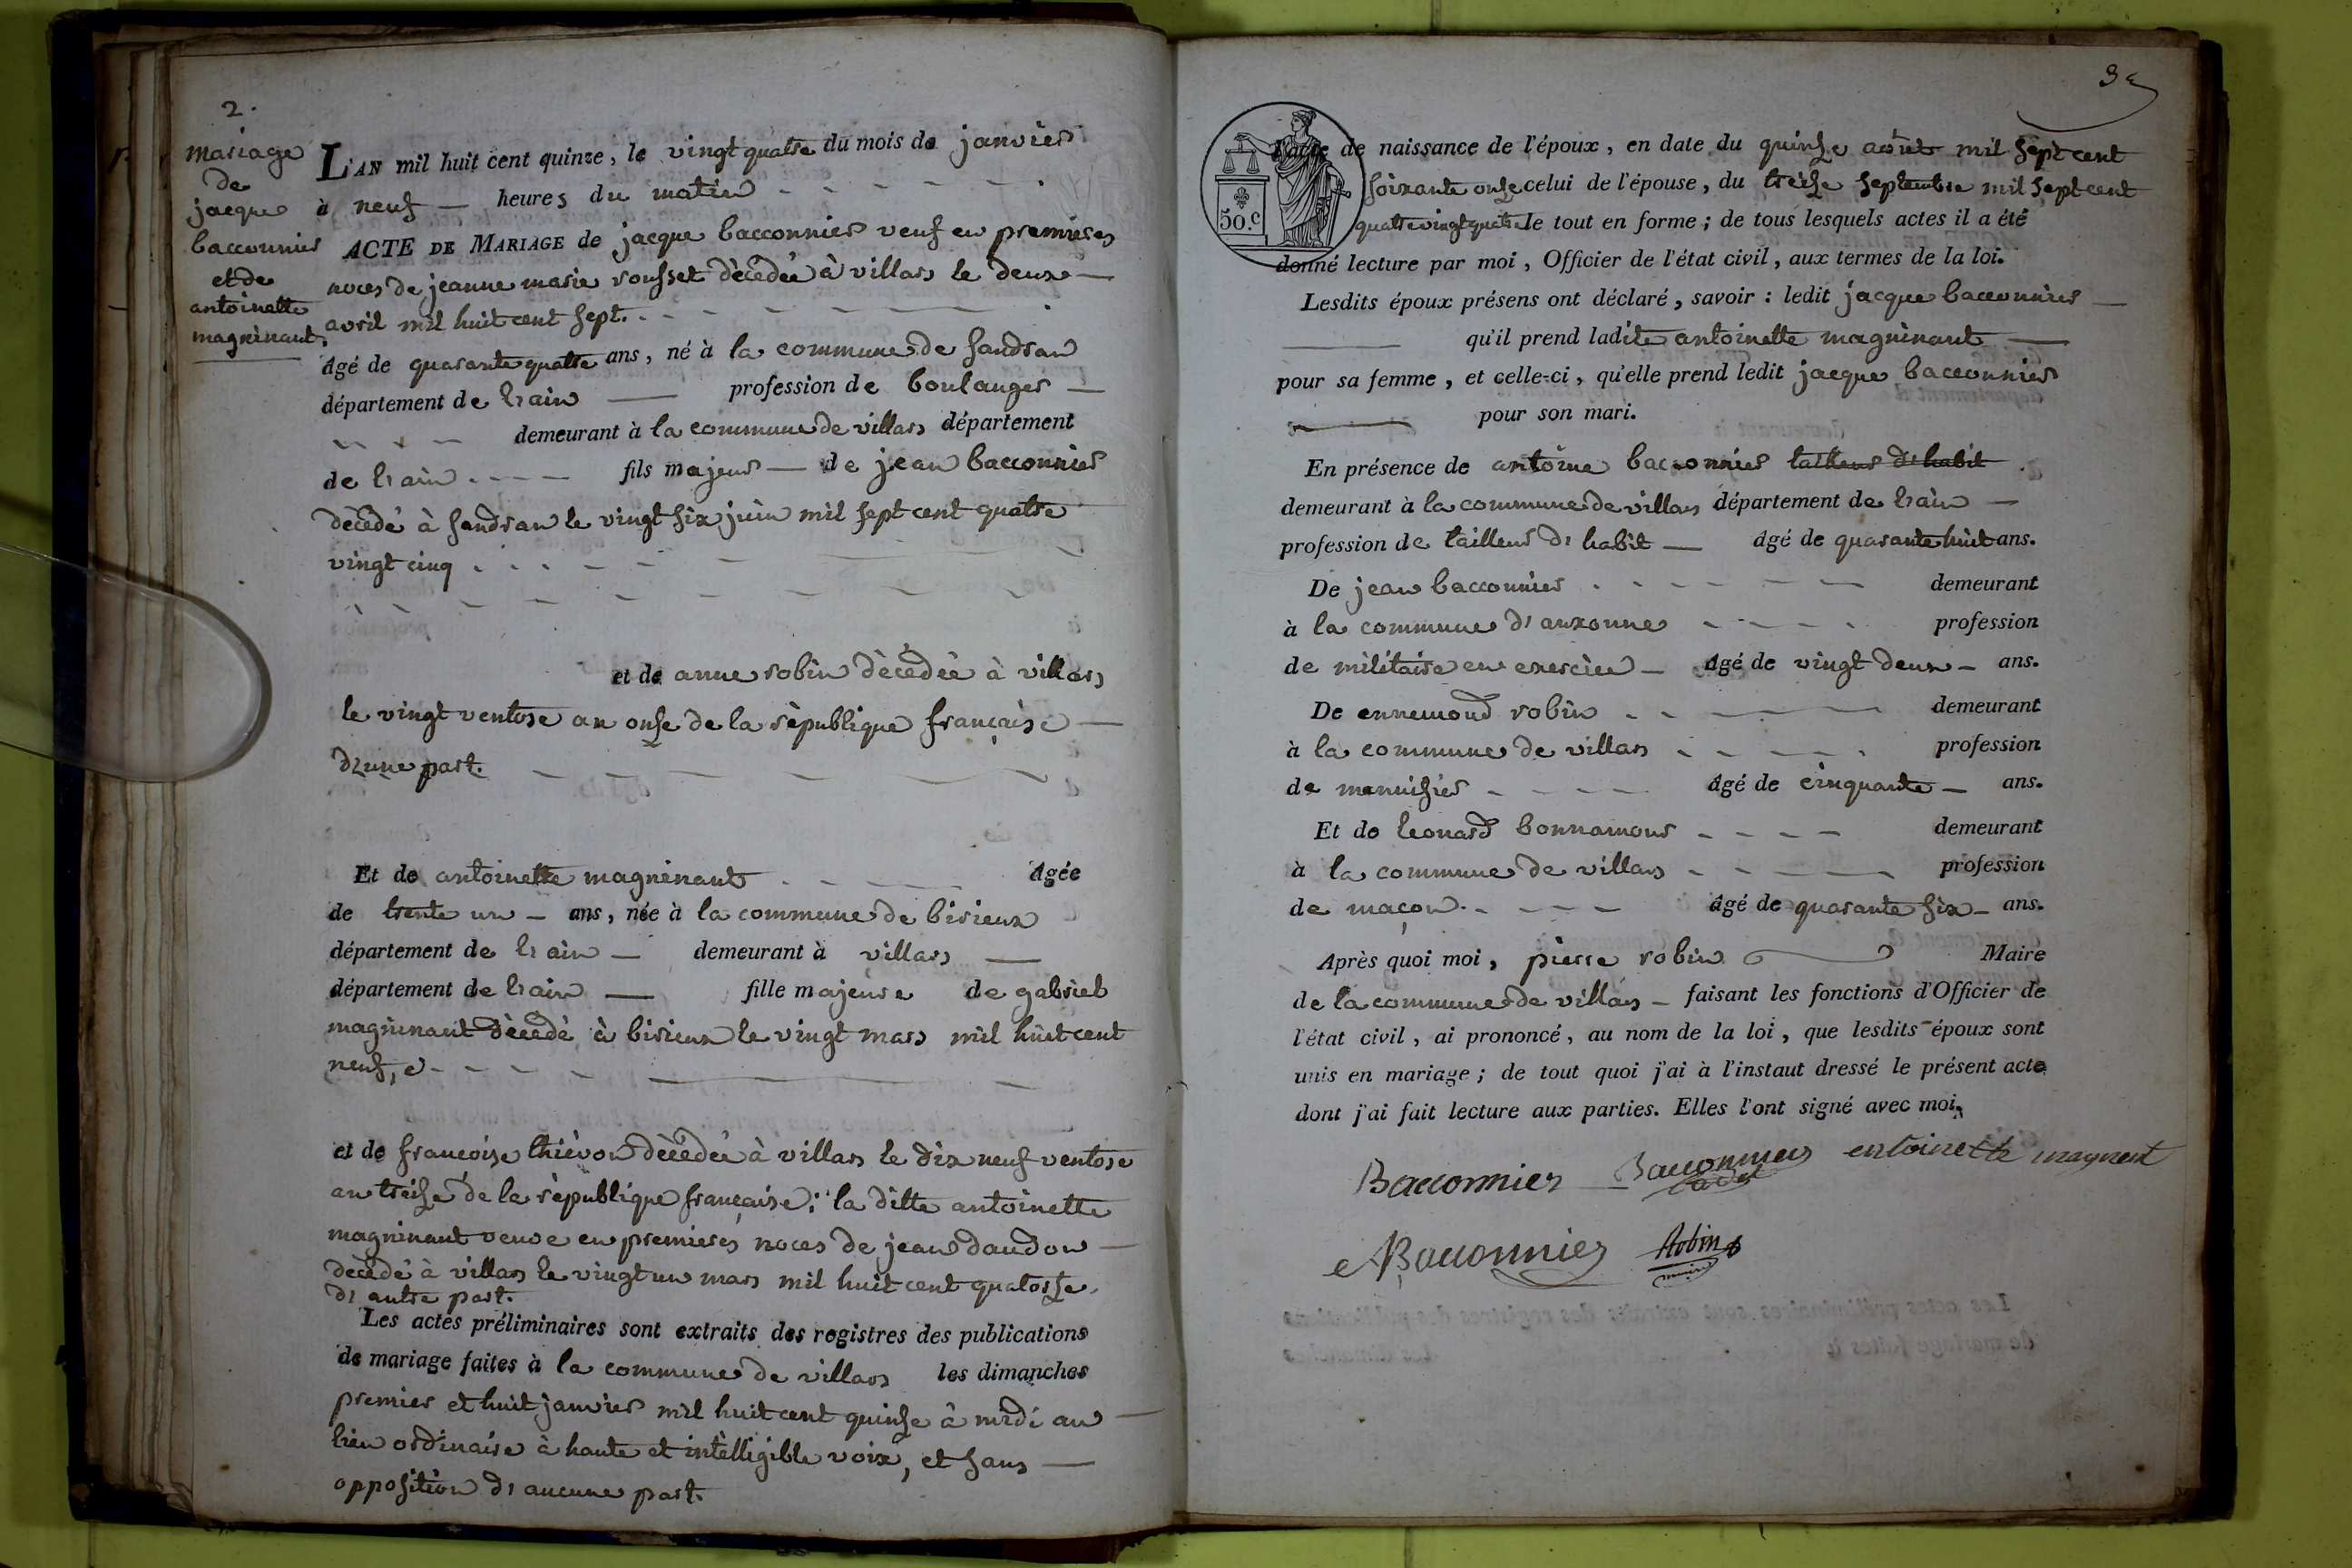 2.
mariage
de
jacque
bacconnier
et de
antoinette
magninant.
L'AN mil huit cent quinze, le vingt quatre du mois de janvier
à neuf — heures du matin
ACTE DE MARIAGE de jacque bacconnier veuf en premieres
noces de jeanne marie rousset dècèdèe à villars le deux —
avril mil huit cent sept.
âgé de quarante quatre ans, né à la commune de sandran
département de l'ain — profession de boulanger —
demeurant à la commune de villars département
de l'ain fils majeur — de jean bacconnier
dècèdé à sandran le vingt six juin mil sept cent quatre
vingt cinq
et de anne robin dècèdèe à villars
le vingt ventose an onse de la rèpublique française —
d'une part.
Et de antoinette magninant âgée
de trente un — ans, née à la commune de birieux
département de l'ain — demeurant à villars —
département de l'ain — fille majeure de gabriel
magninant dècèdè à birieux le vingt mars mil huit cent
neuf,
et de françoise thièvon dècèdèe à villars le dix neuf ventose
an treise de la rèpublique française; la ditte antoinette
magninant veuve en premieres noces de jean daudon —
dècèdè à villars le vingt un mars mil huit cent quatorse,
d'autre part.
Les actes préliminaires sont extraits des registres des publications
de mariage faites à la commune de villars les dimanches
premier et huit janvier mil huit cent quinse à midi au —
lieu ordinaire à haute et intèlligible voix, et sans —
opposition d'aucune part.
3
50.c
l'acte de naissance de l'époux, en date du quinse août mil sept cent
soixante onse celui de l'épouse, du treise septembre mil sept cent
quatre vingt quatre le tout en forme; de tous lesquels actes il a été
donné lecture par moi, Officier de l'état civil, aux termes de la loi.
Lesdits époux présens ont déclaré, savoir: ledit jacque bacconnier —
qu'il prend ladite antoinette magninant —
pour sa femme, et celle-ci, qu'elle prend ledit jacque bacconnier
pour son mari.
En présence de antoine bacconnier tailleur d'habit
demeurant à la commune de villars département de l'ain —
profession de tailleur d'habit — âgé de quarante huit ans.
De jean bacconnier demeurant
à la commune d'auxonne profession
de militaire en exercice — âgé de vingt deux — ans.
De ennemond robin demeurant
à la commune de villars profession
de menuisier âgé de cinquante — ans.
Et de leonard bonnamour demeurant
à la commune de villars profession
de maçon. âgé de quarante six — ans.
Après quoi moi, pierre robin Maire
de la commune de villars — faisant les fonctions d'Officier de
l'état civil, ai prononcé, au nom de la loi, que lesdits époux sont
unis en mariage; de tout quoi j'ai à l'instaut dressé le présent acte
dont j'ai fait lecture aux parties. Elles l'ont signé avec moi.
Bacconnier Bacconnier cadet entoinette magnent
Bacconnier Robin
maire